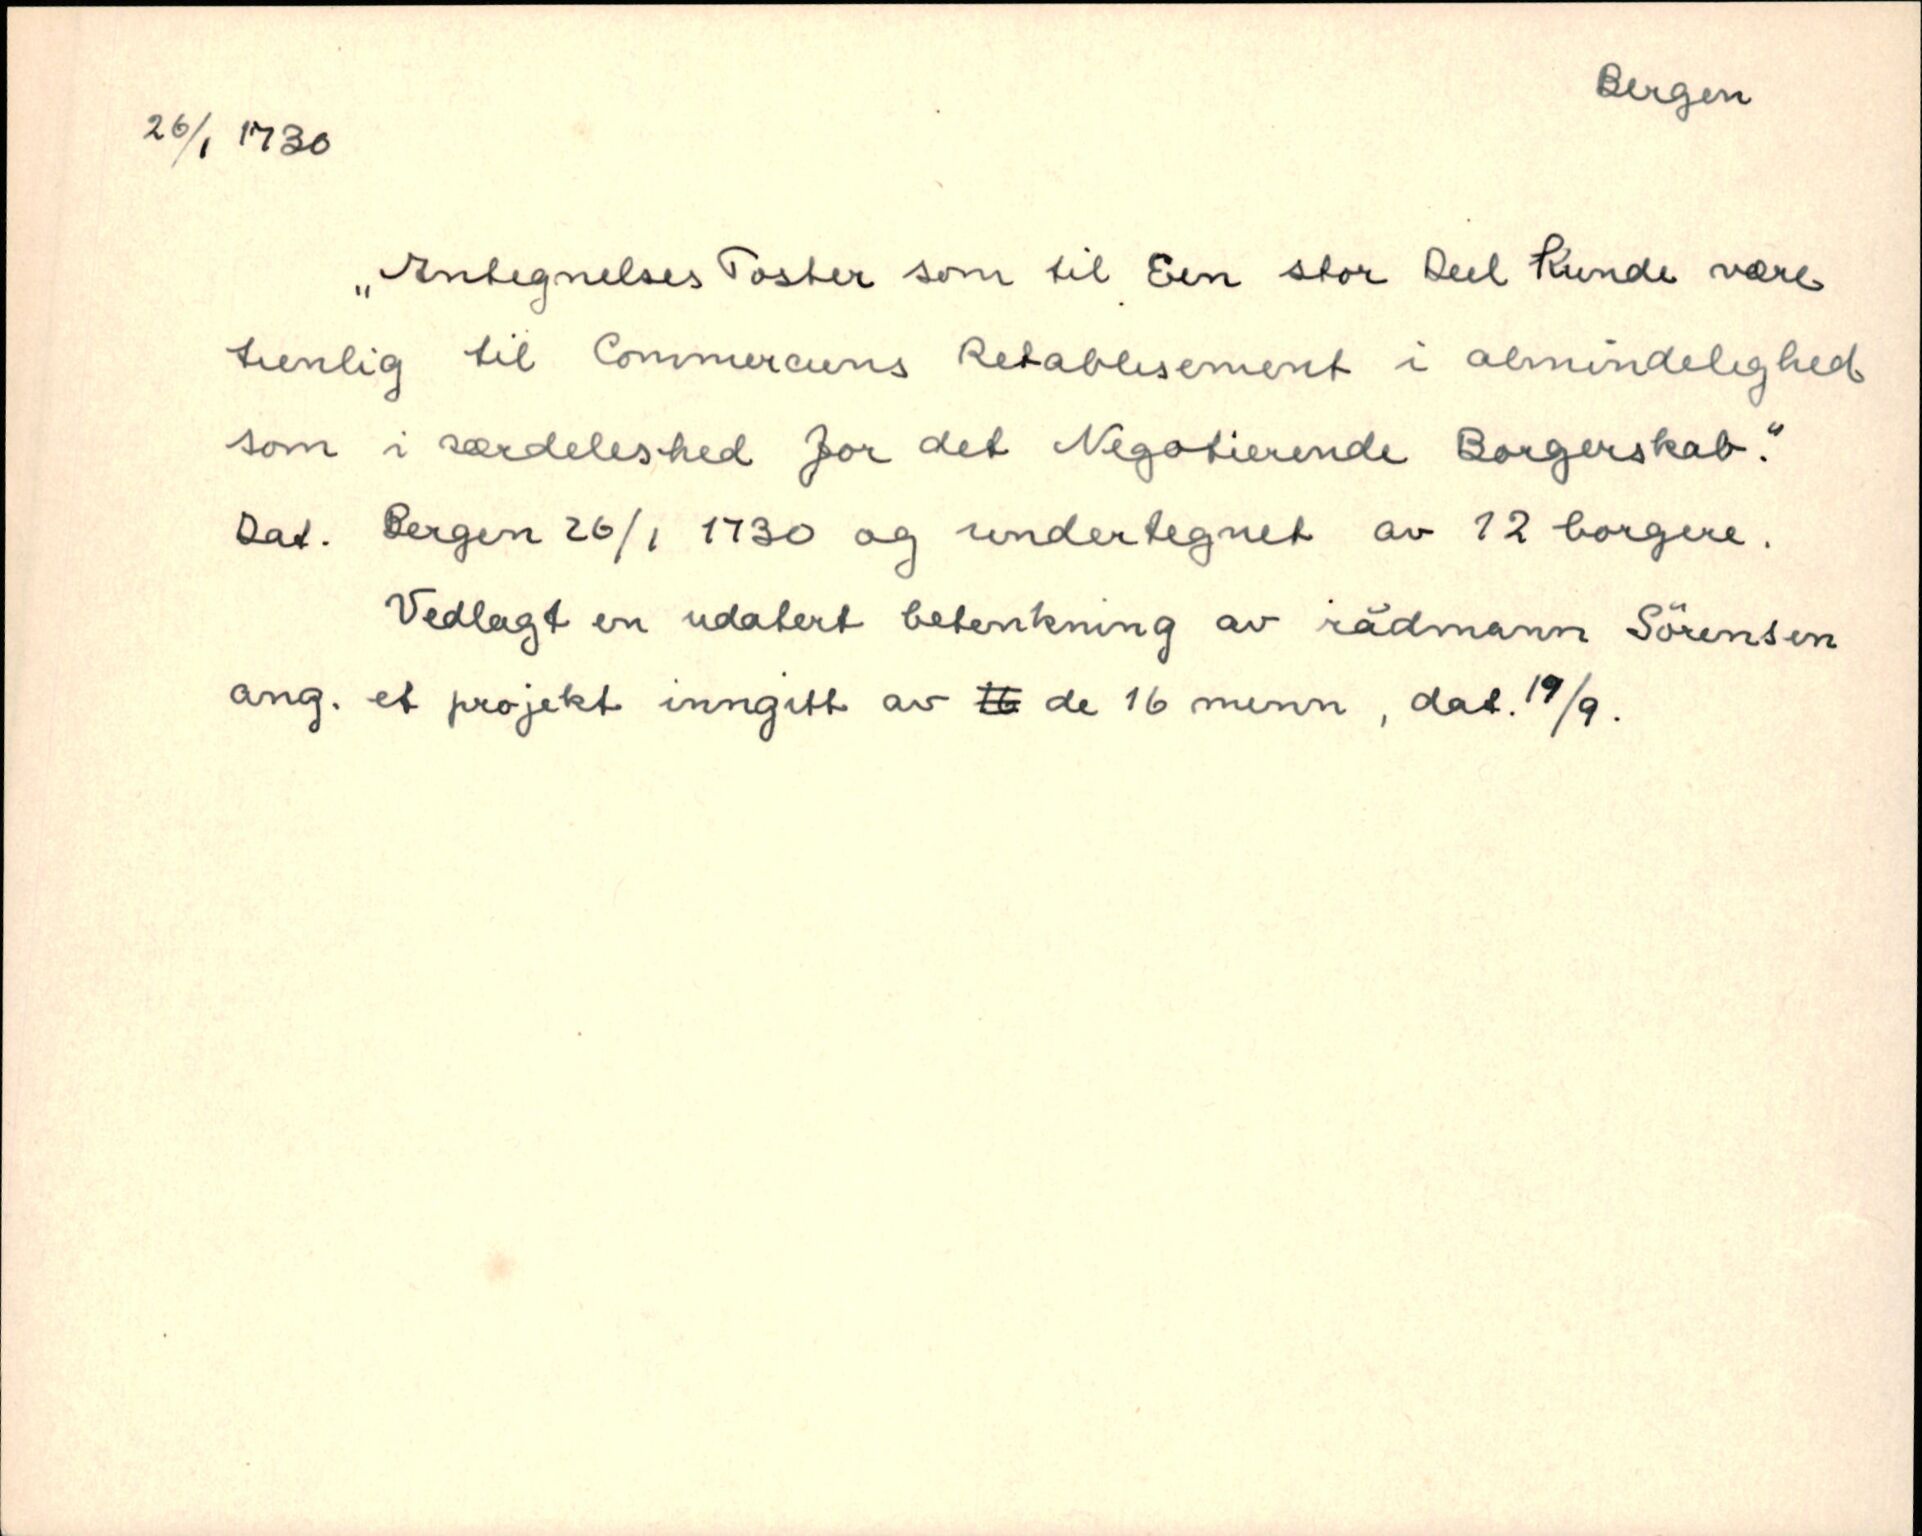 Bergen
26/1 1730
„Antegnelses Poster som til Een stor Deel Kunde være
tienlig til Commerciens Retablisement i almindelighed
som i særdeleshed for det Negotierende Borgerskab."
Dat. Bergen 26/1 1730 og undertegnet av 12 borgere.
Vedlagt en udatert betenkning av rådmann Sörensen
ang. et projekt inngitt av ~~16~~ de 16 menn, dat. 19/9.